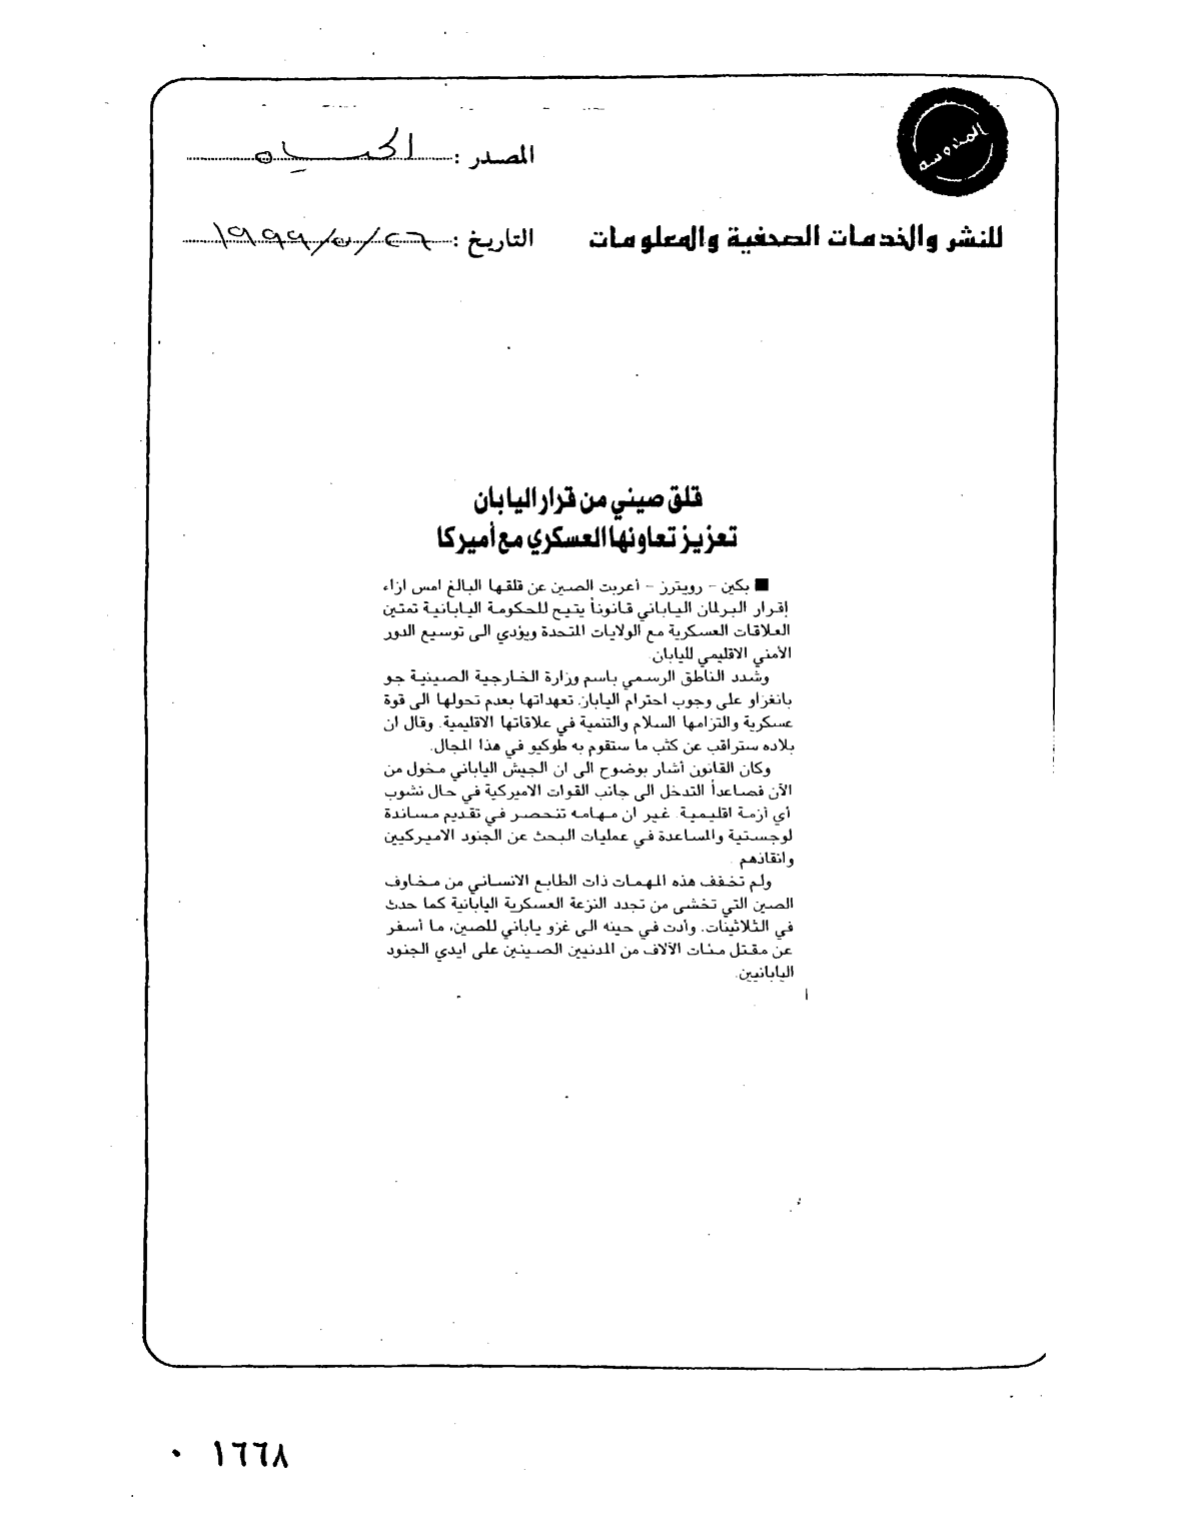 المصدر : الحياه
للنشر والخدمات الصحفية والمعلومات
التاريخ : ٢٦/٥/١٩٩٩
قلق صيني من قرار اليابان
تعزيز تعاونها العسكري مع أميركا
■ بكين - رويترز - أعربت الصين عن قلقها البالغ امس ازاء
إقرار البرلمان الياباني قانوناً يتيح للحكومة اليابانية تمتين
العلاقات العسكرية مع الولايات المتحدة ويؤدي الى توسيع الدور
الأمني الاقليمي لليابان.
وشدد الناطق الرسمي باسم وزارة الخارجية الصينية جو
بانغزاو على وجوب احترام اليابان تعهداتها بعدم تحولها الى قوة
عسكرية والتزامها السلام والتنمية في علاقاتها الاقليمية. وقال ان
بلاده ستراقب عن كثب ما ستقوم به طوكيو في هذا المجال.
وكان القانون أشار بوضوح الى ان الجيش الياباني مخول من
الآن فصاعداً التدخل الى جانب القوات الاميركية في حال نشوب
أي أزمة اقليمية. غير ان مهامه تنحصر في تقديم مساندة
لوجستية والمساعدة في عمليات البحث عن الجنود الاميركيين
وانقاذهم.
ولم تخفف هذه المهمات ذات الطابع الانساني من مخاوف
الصين التي تخشى من تجدد النزعة العسكرية اليابانية كما حدث
في الثلاثينات. وأدت في حينه الى غزو ياباني للصين، ما أسفر
عن مقتل مئات الآلاف من المدنيين الصينين على ايدي الجنود
اليابانيين.
١٦٦٨